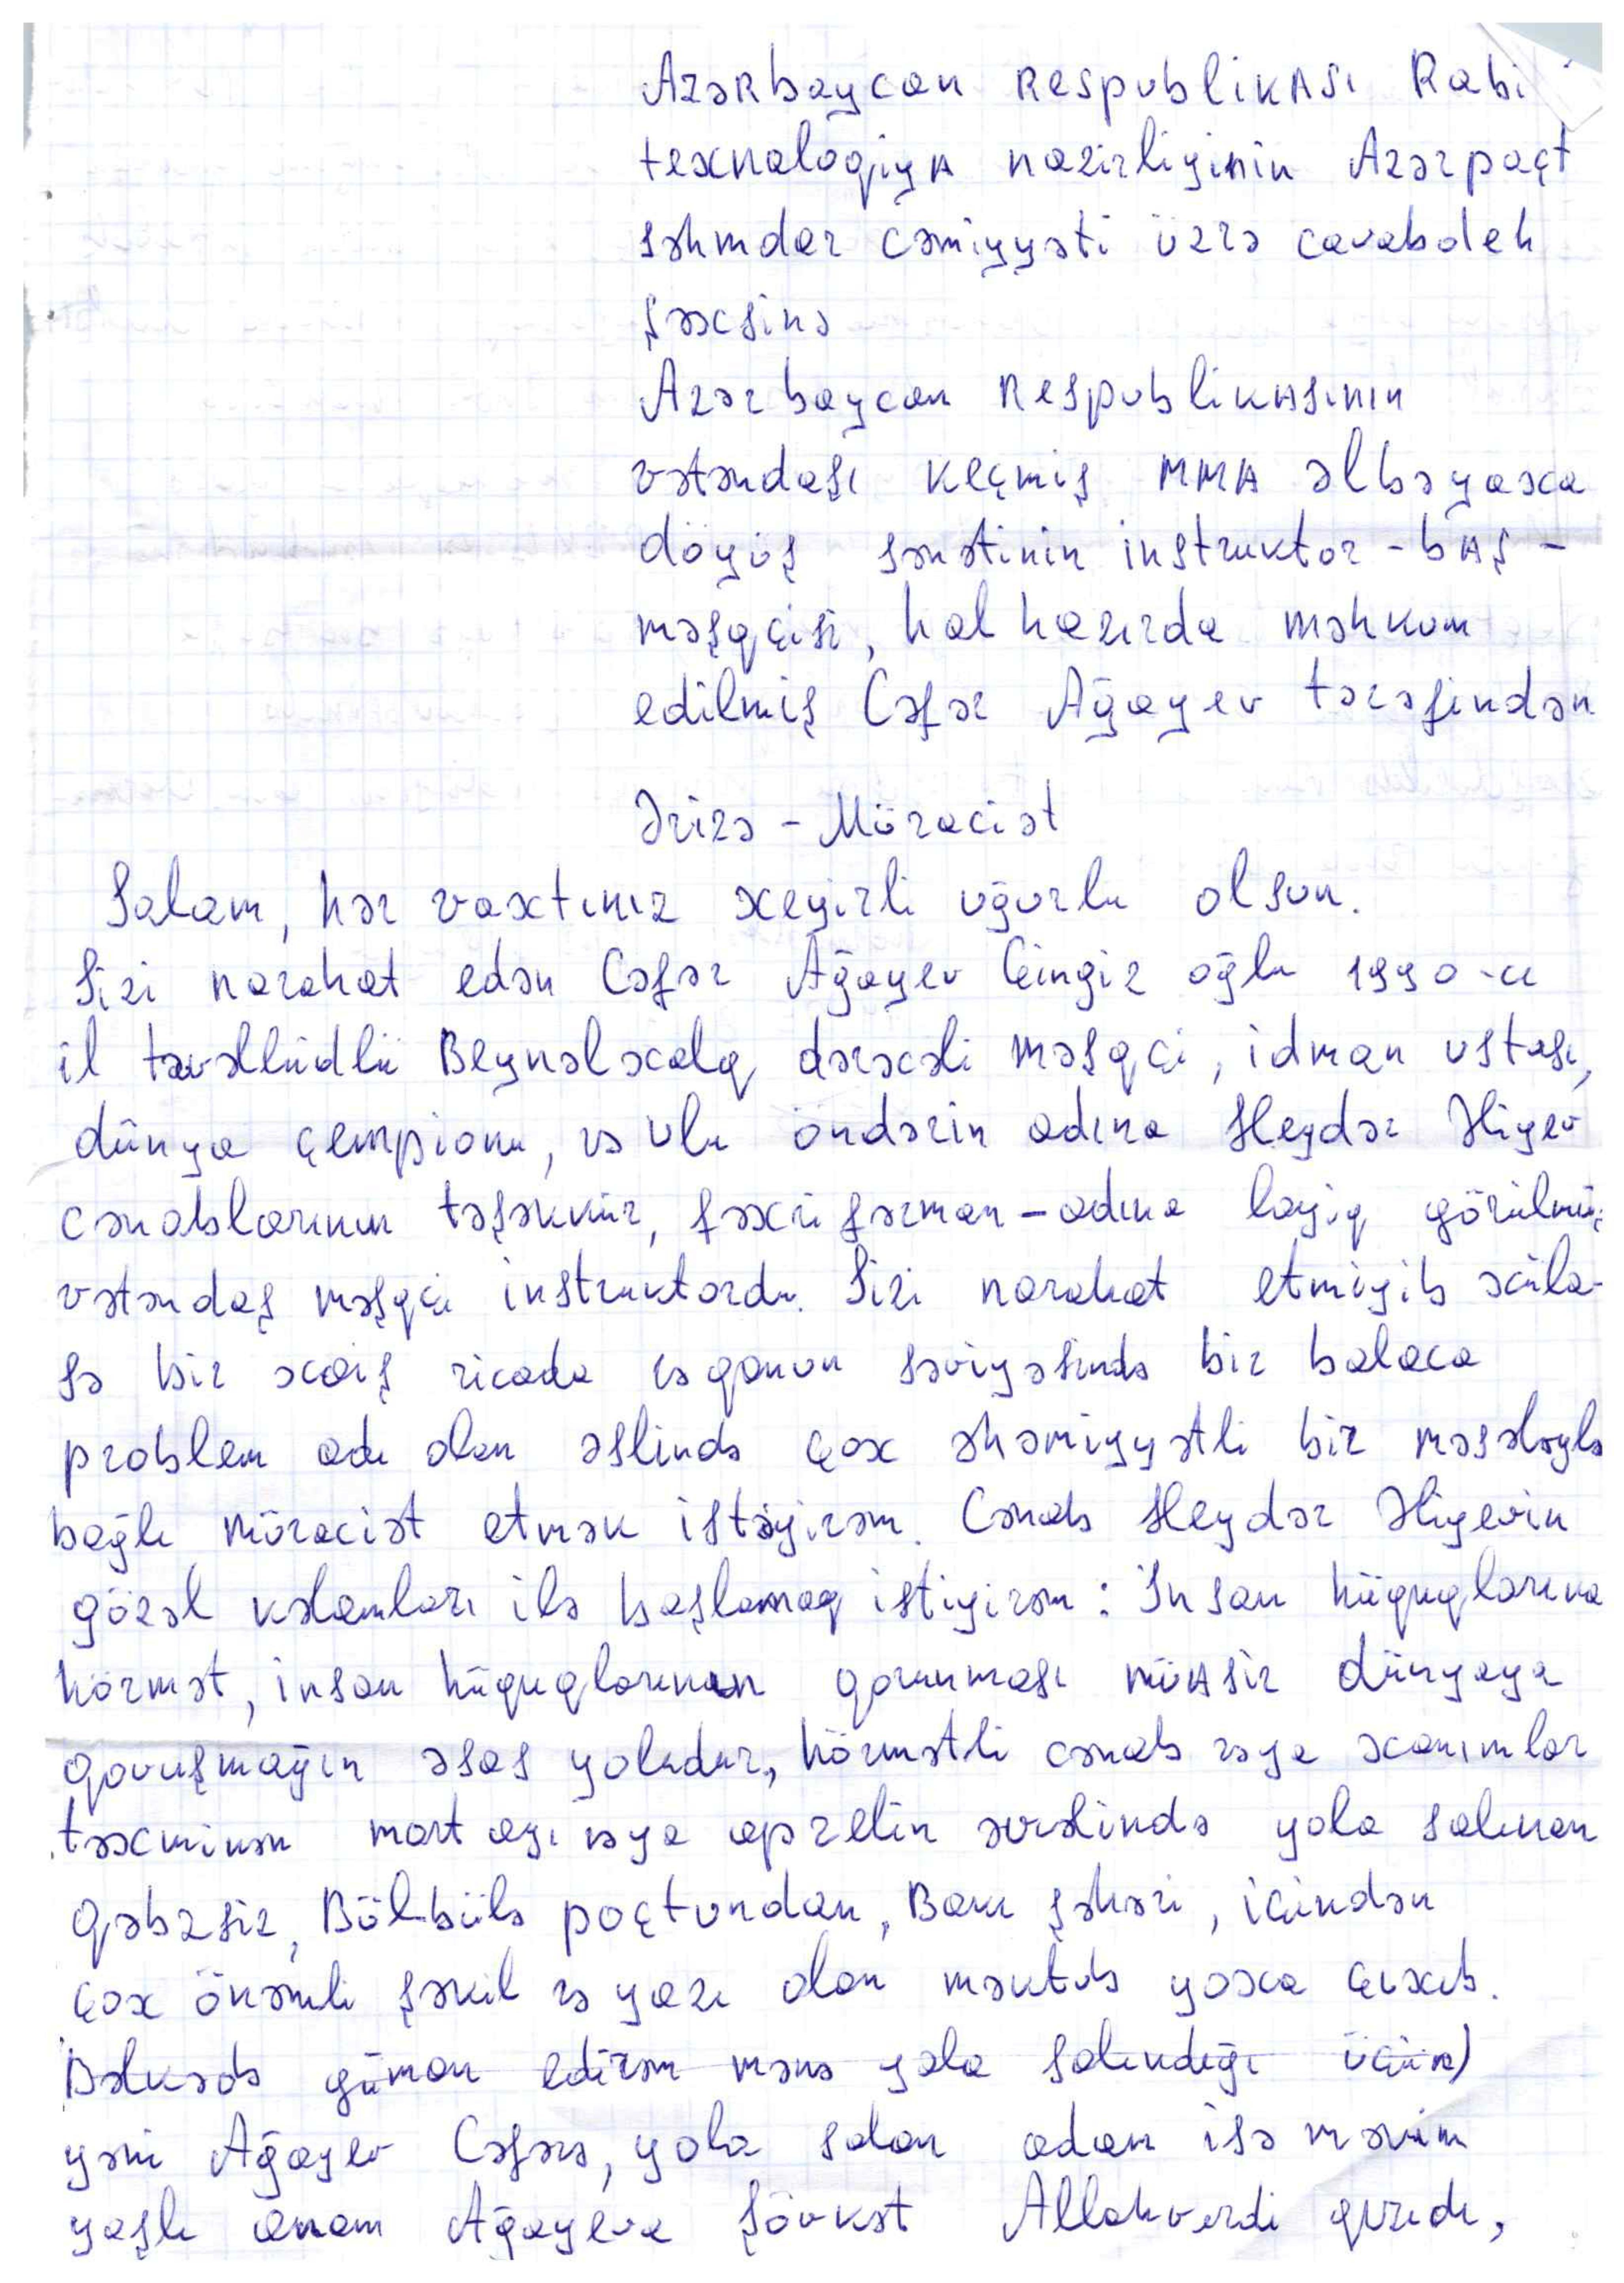 Azərbaycan Respublikası Rabi
texnalogiya nazirliyinin Azərpoçt
səhmdar cəmiyyəti üzrə cavabdeh
şəxsinə
Azərbaycan Respublikasının
vətəndaşı keçmiş MMA əlbəyaxa
döyüş sənətinin instruktor-baş-
məşqçisi, hal hazırda məhkum
edilmiş Cəfər Ağayev tərəfindən
Ərizə - Müraciət
Salam, hər vaxtınız xeyirli uğurlu olsun.
Sizi narahat edən Cəfər Ağayev Çingiz oğlu 1990-cı
il təvəllüdlü Beynəlxalq dərəcəli məşqçi, idman ustası,
dünya çempionu, və ulu öndərin adına Heydər Əliyev
cənablarının təşəkkür, fəxri fərman-adına layiq görülmüş
vətəndaş məşqçi instruktordu. Sizi narahat etmiyib xüla-
sə bir xaiş ricada və qanun səviyəsində bir balaca
problem adı olan əslində çox əhəmiyyətli bir məsələylə
bağlı müraciət etmək istəyirəm. Cənab Heydər Əliyevin
gözəl kəlamları ilə başlamaq istiyirəm: İnsan hüquqlarına
hörmət, insan hüquqlarının qorunması müasir dünyaya
qovuşmağın əsas yoludur, hörmətli cənab vəya xanımlar
təxminən mart ayı vəya aprelin əvvəlində yola salınan
qəbzsiz, Bülbülə poçtundan, Bakı şəhəri, içindən
çox önəmli şəkil və yazı olan məktub yoxa çıxıb.
Bəlkədə güman edirəm mənə yola salındığı üçün)
yəni Ağayev Cəfərə, yola salan adam isə mənim
yaşlı anam Ağayeva Şövkət Allahverdi qızıdı,